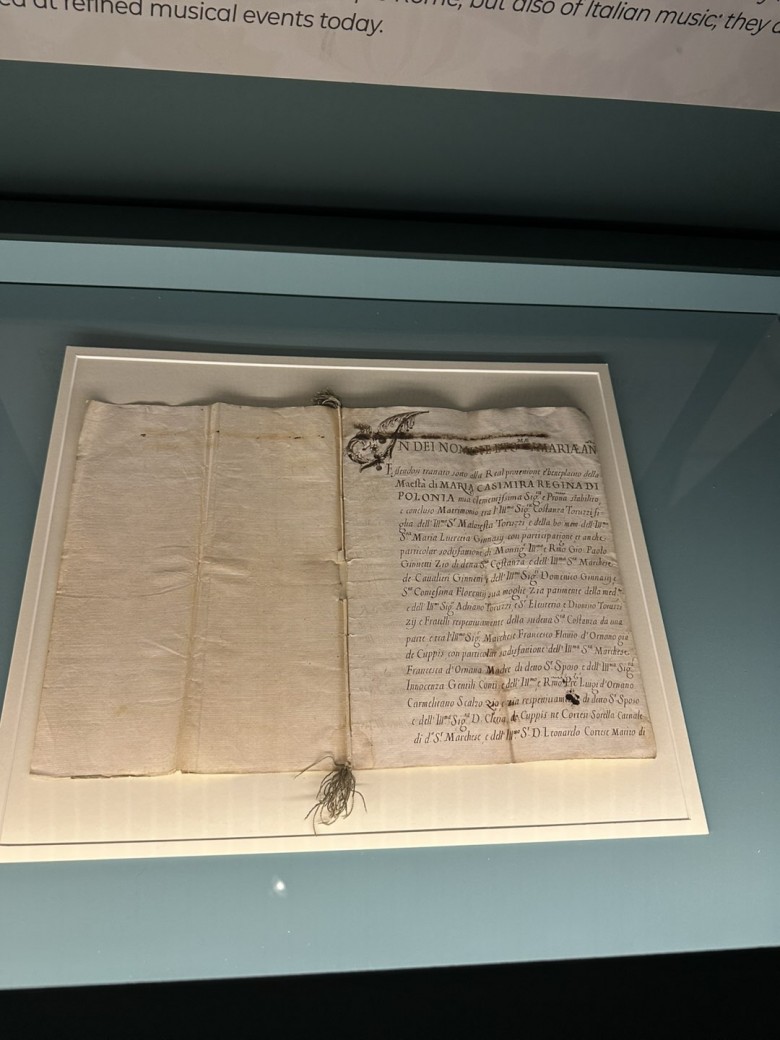 ed at refined musical events today.
but also of Italian music; they
N DEI NOMINE MARIÆ
Essendosi trattato sotto alla Real protenzione e beneplacito della
Maestà di MARIA CASIMIRA REGINA DI
POLONIA mia clementissima Sig.ra e Prona stabilito,
e concluso Matrimonio tra l'Ill.ma Sig.ra Costanza Toruzzi fi-
glia dell' Ill.mo S.r Malatesta Toruzzi e della bo: mem: dell' Ill.ma
S.ra Maria Lucrezia Ginnasij con partecipazione et anche
particolar sodisfazione di Monsig.r Ill.mo e R.mo Gio: Paolo
Ginnetti Zio di detta S.ra Costanza e dell' Ill.mo S.r Marchese
de Cavalieri Ginnetti, dell' Ill.mo Sig.r Domenico Ginnasij e
S.ra Contessa Florenzi sua moglie Zia parimente della med.ma
e dell' Ill.mi Sig.ri Adriano Toruzzi e S.r Eleuterio e Dionisio Toruzzi
zij e Fratelli respettivamente della sudetta S.ra Costanza da una
parte e tra l'Ill.mo Sig. Marchese Francesco Flavio d'Ornano già
de Cuppis con particolar sodisfazione dell' Ill.ma S.ra Marchese
Francesca d'Ornana Madre di detto S.r Sposo e dell' Ill.ma Sig.ra
Innocenza Gentili Conti e dell' Ill.mo e R.mo P.re Luigi d'Ornano
Carmelitano Scalzo zio e zia respettivam di detto S.r Sposo
e dell' Ill.ma Sig.ra D. de Cuppis ne Cortesi Sorella Carnale
di d.o S.r Marchese e dell' Ill.mo S.r D. Leonardo Cortese Marito di